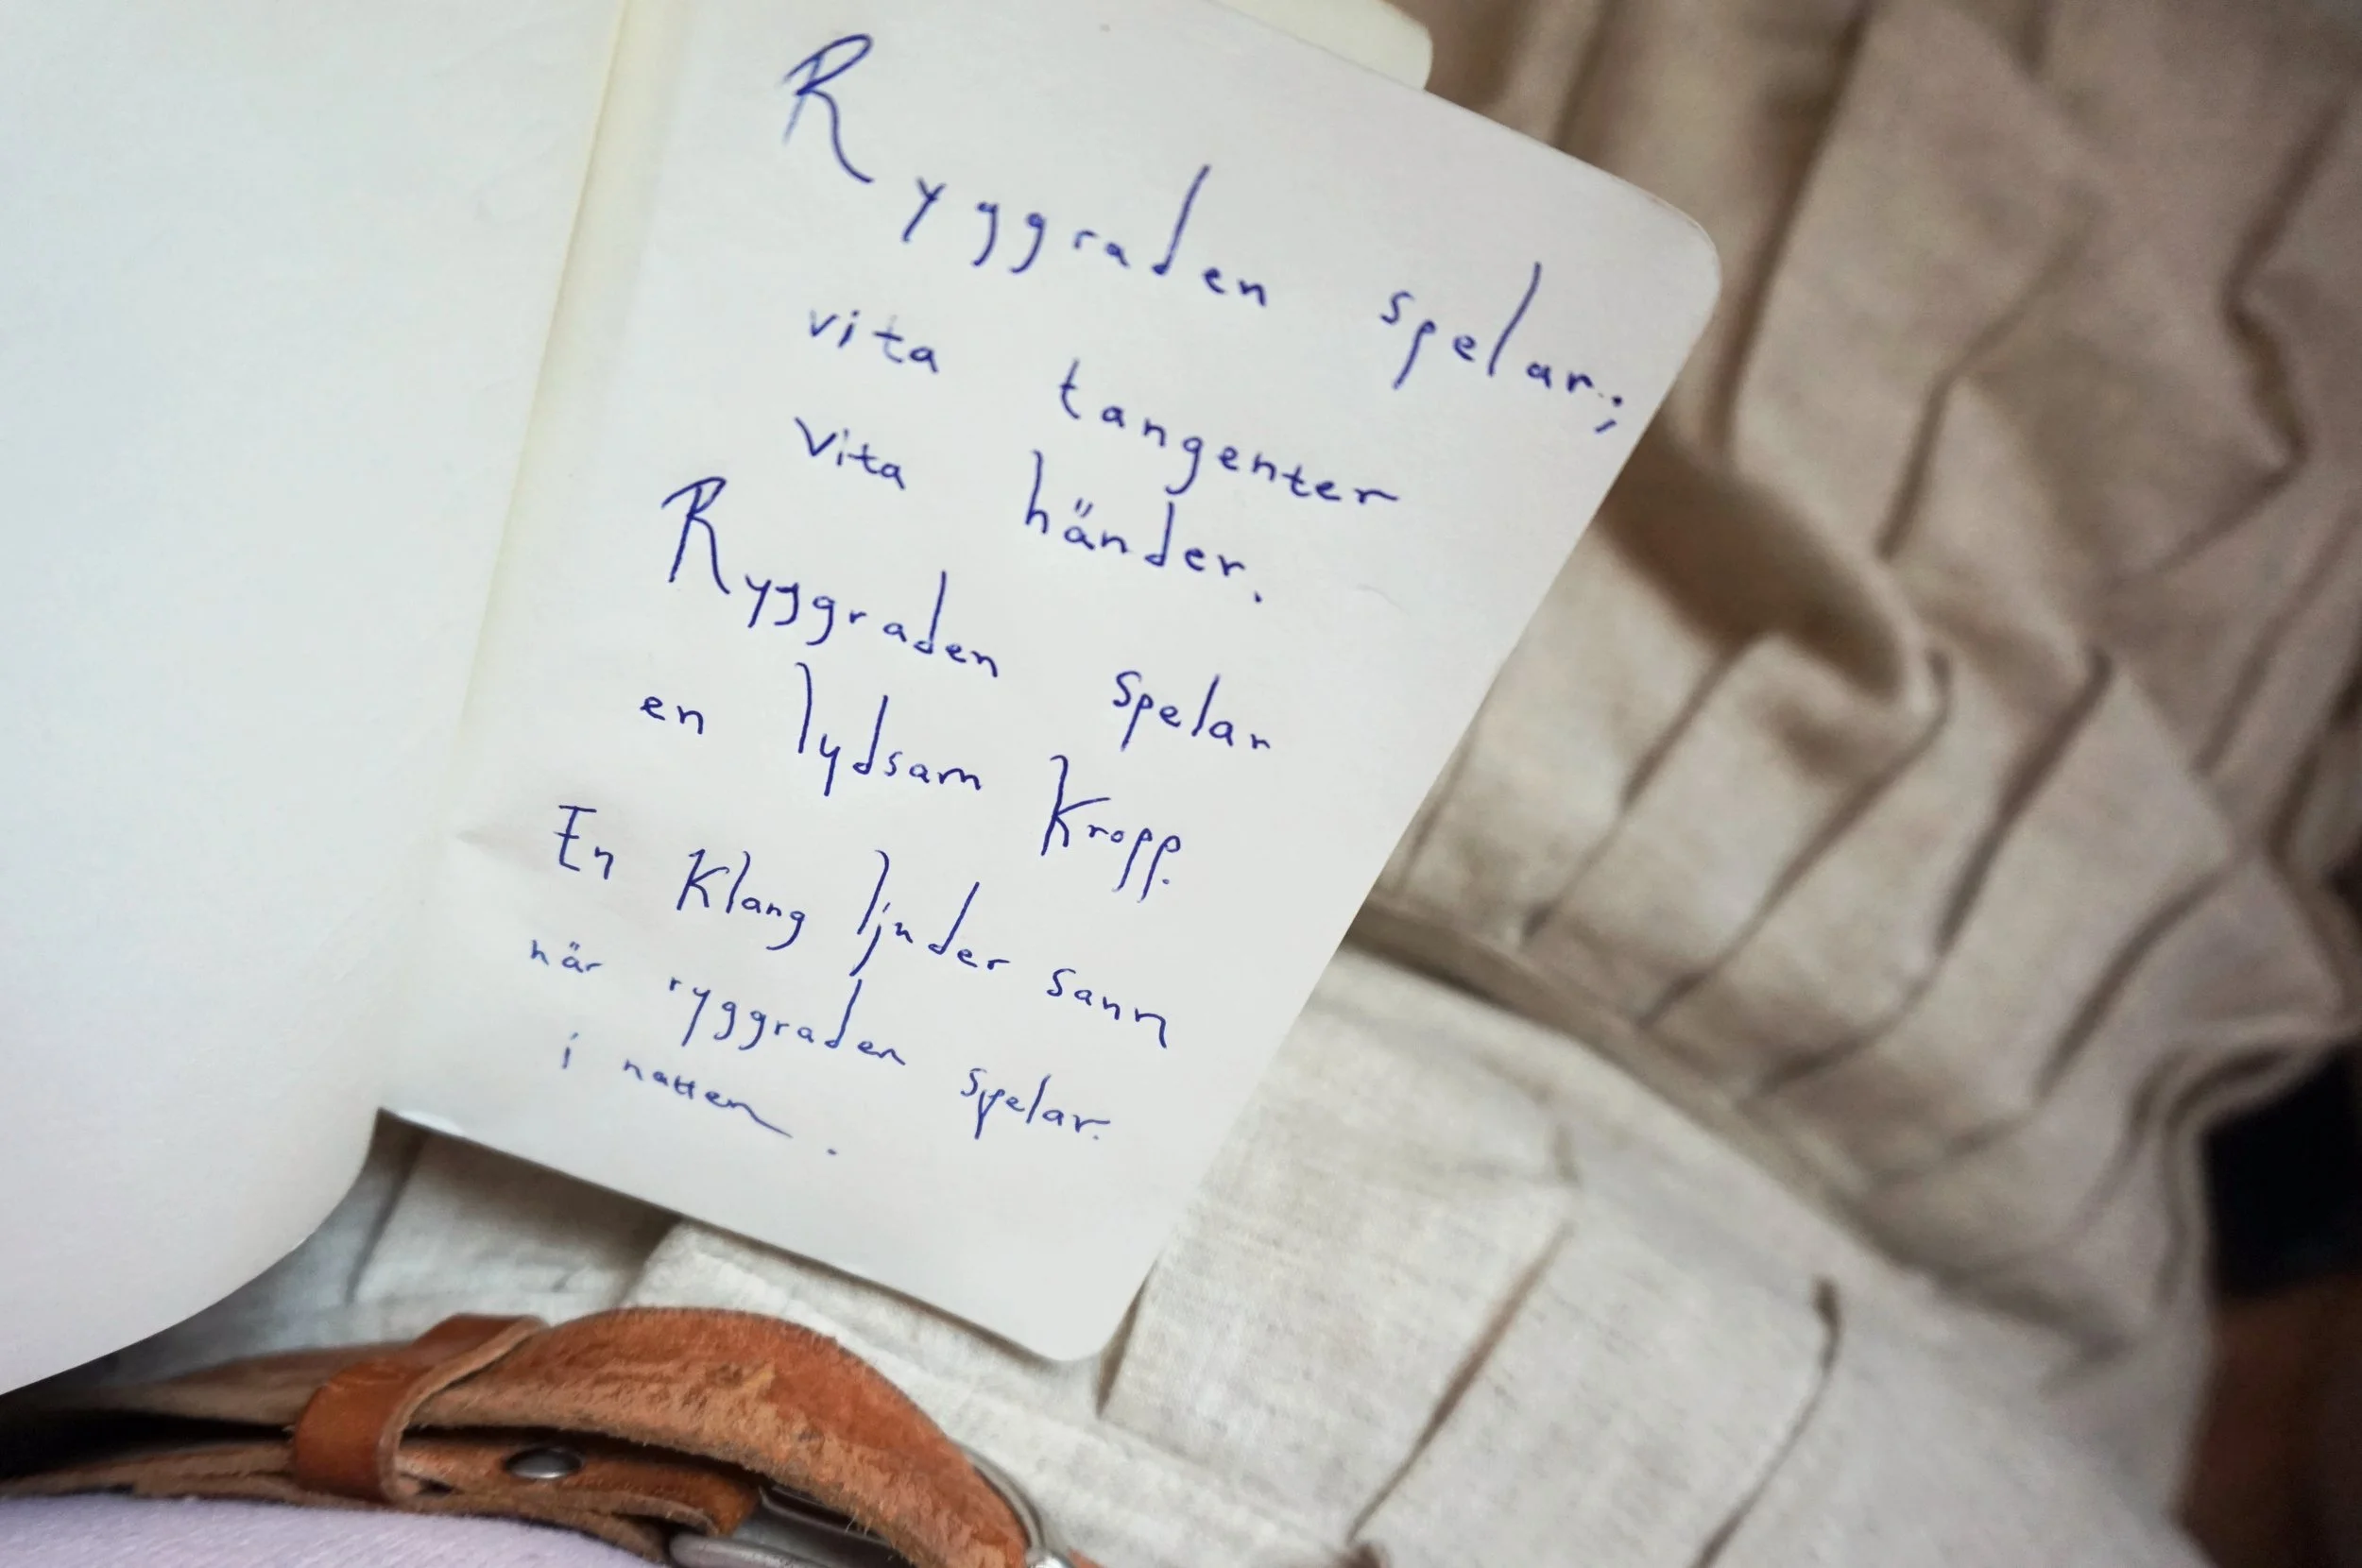 Ryggraden spelar;
vita tangenter
vita händer.
Ryggraden spelar
en lydsam kropp.
En klang ljuder sann
när ryggraden spelar.
i natten.